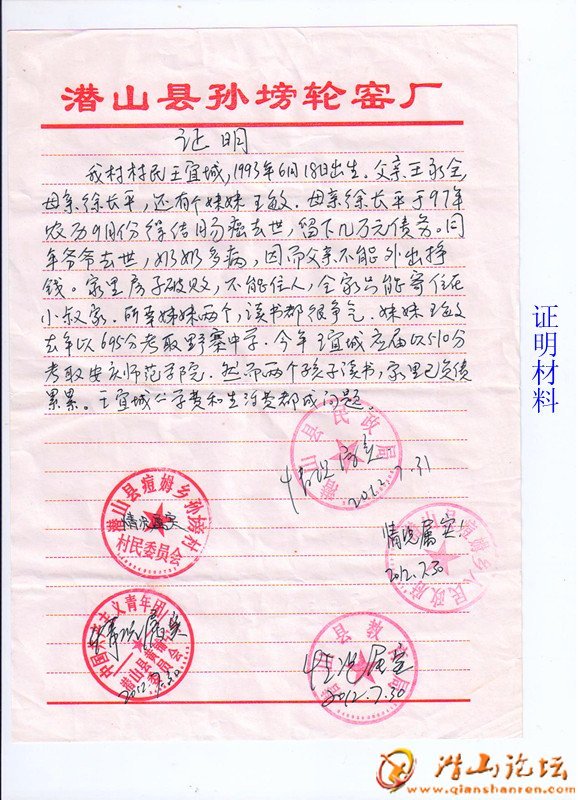 潜山县孙塝轮窑厂
证明
我村村民王宜城,1993年6月18日出生.父亲王永全,
母亲徐长平,还有个妹妹王敏.母亲徐长平于97年
农历9月份得结肠癌去世,留下几万元债务。同
年爷爷去世,奶奶多病,因而父亲不能外出挣
钱。家里房子破败,不能住人,全家只能寄住在
小叔家.所幸姊妹两个,读书都很争气.妹妹王敏
去年以695分考取野寨中学.今年王宜城应届以510分
考取安庆师范学院.然而两个孩子读书,家里已负债
累累。王宜城公学费和生活费都成问题。
潜山县民政局
情况属实
2012.7.31
潜山县痘姆乡孙塝村
情况属实
村民委员会
潜山县痘姆乡人民政府
情况属实!
2012.7.30
中国共产主义青年团
情况属实
潜山县
委员会
2012.7.30
县教
局
情况属实
2012.7.30
证明材料
潜山论坛
www.qianshanren.com